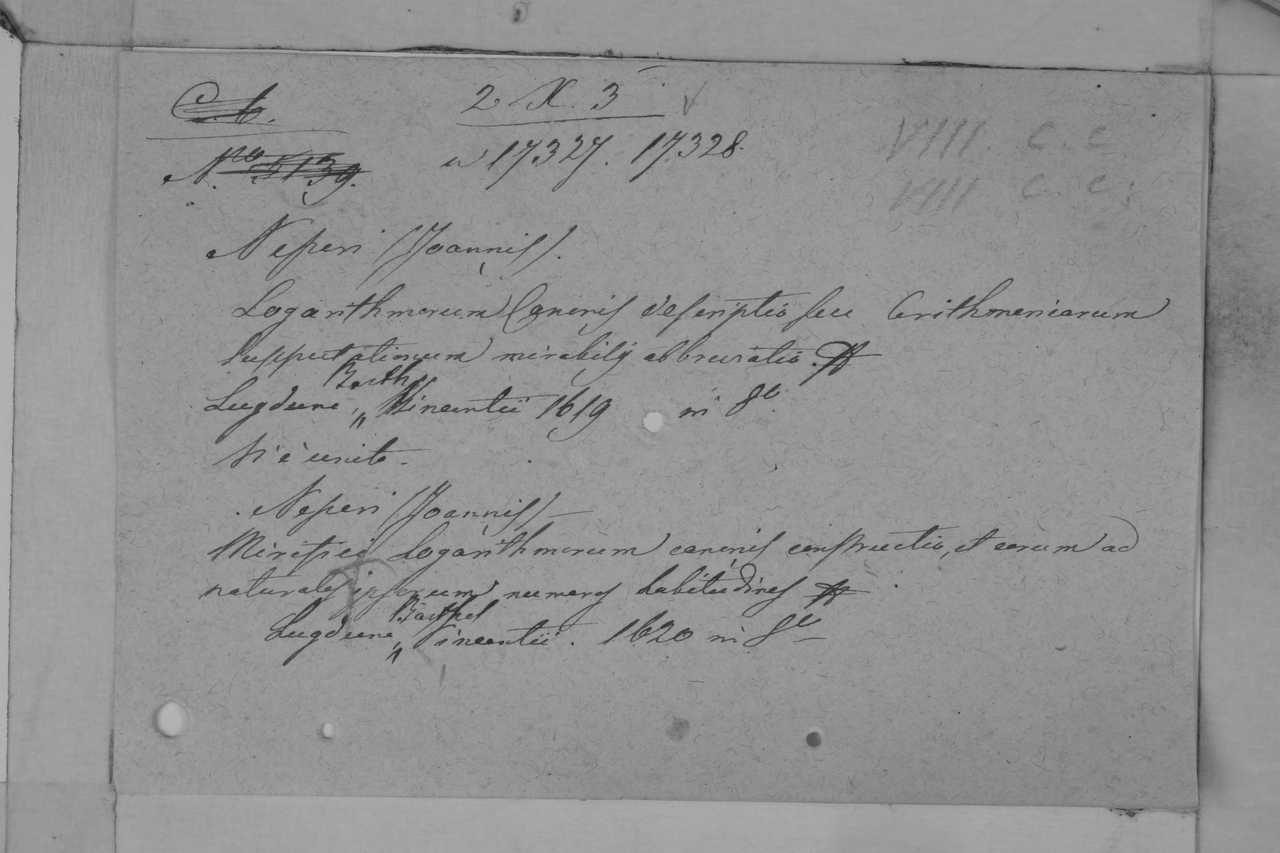 C. b.
2. X. 3
N.ro 5139.
17327. 17328.
VIII C. C
VIII C. C.
Neperi (Joannis).
Logarithmorum Canonis descriptio seu Arithmeniarum
supputationum mirabilis abbreviatio.
Barth
Lugduni, „ Vincentii 1619 in 8º
Vi è unito.
Neperi (Joannis)
Mirifici Logarithmorum canonis constructio, et eorum ad
naturales ipsorum numeros habitudines
Barthol
Lugduni „ Vincentii. 1620 in 8º